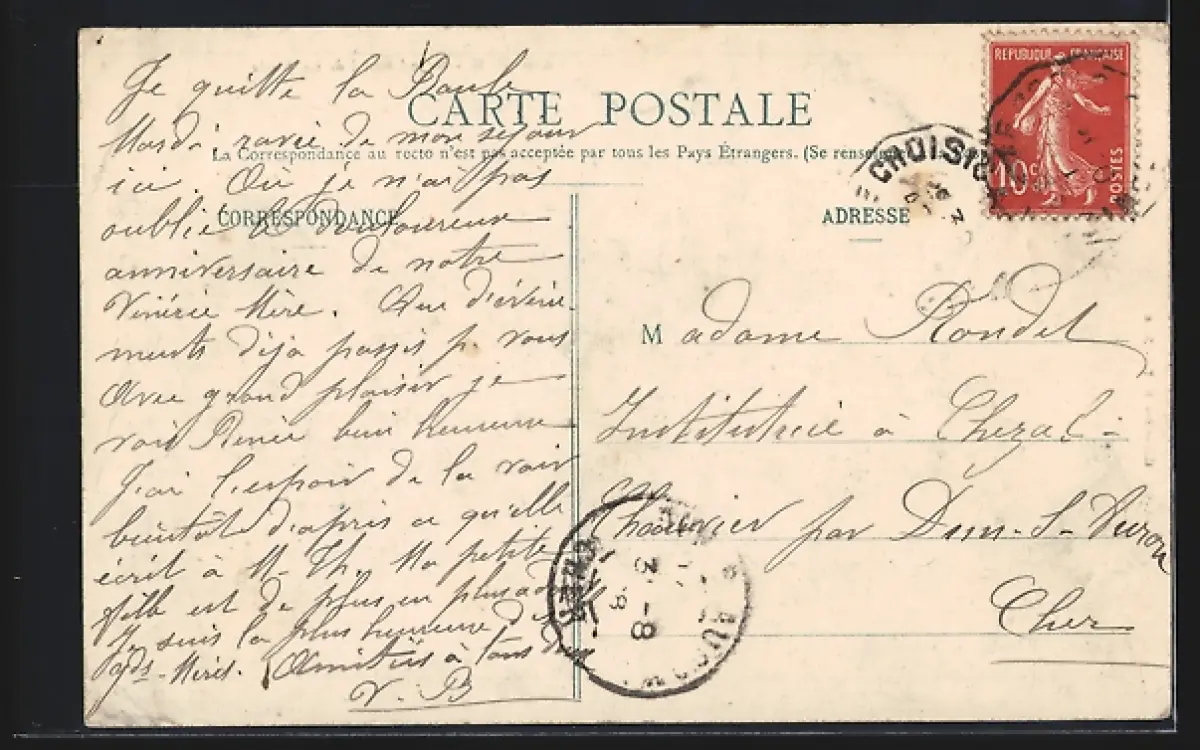 CARTE POSTALE
La Correspondance au recto n'est pas acceptée par tous les Pays Étrangers. (Se rensei
CORRESPONDANCE
ADRESSE
Je quitte la Baule
Mardi ravie de mon séjour
ici. Où je n'ai pas
oublié le douloureux
anniversaire de notre
Vénérée Mère. Que d'évène
ments déjà passés p. vous
Avec grand plaisir je
vois Renée bien heureuse
J'ai l'espoir de la voir
bientôt d'après ce qu'elle
écrit à M. Th. Ma petite
fille est de plus en plus
Je suis la plus heureuse des
gds-Mères. Amitiés à tous
V. B
REPUBLIQUE FRANÇAISE
10c
POSTES
CROISIC
Madame Rondet
Institutrice à Chezal-
Chauvier par Dun-S-Auron
Cher
3 - 8